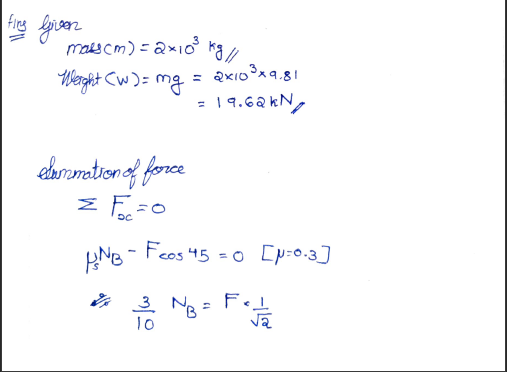 Ans Given
mass(m) = 2×10³ kg //
Weight (w) = mg = 2×10³×9.81
= 19.62 kN //
Summation of force
Σ Fx = 0
μsNB - F cos 45 = 0 [μ=0.3]
3/10 NB = F × 1/√2